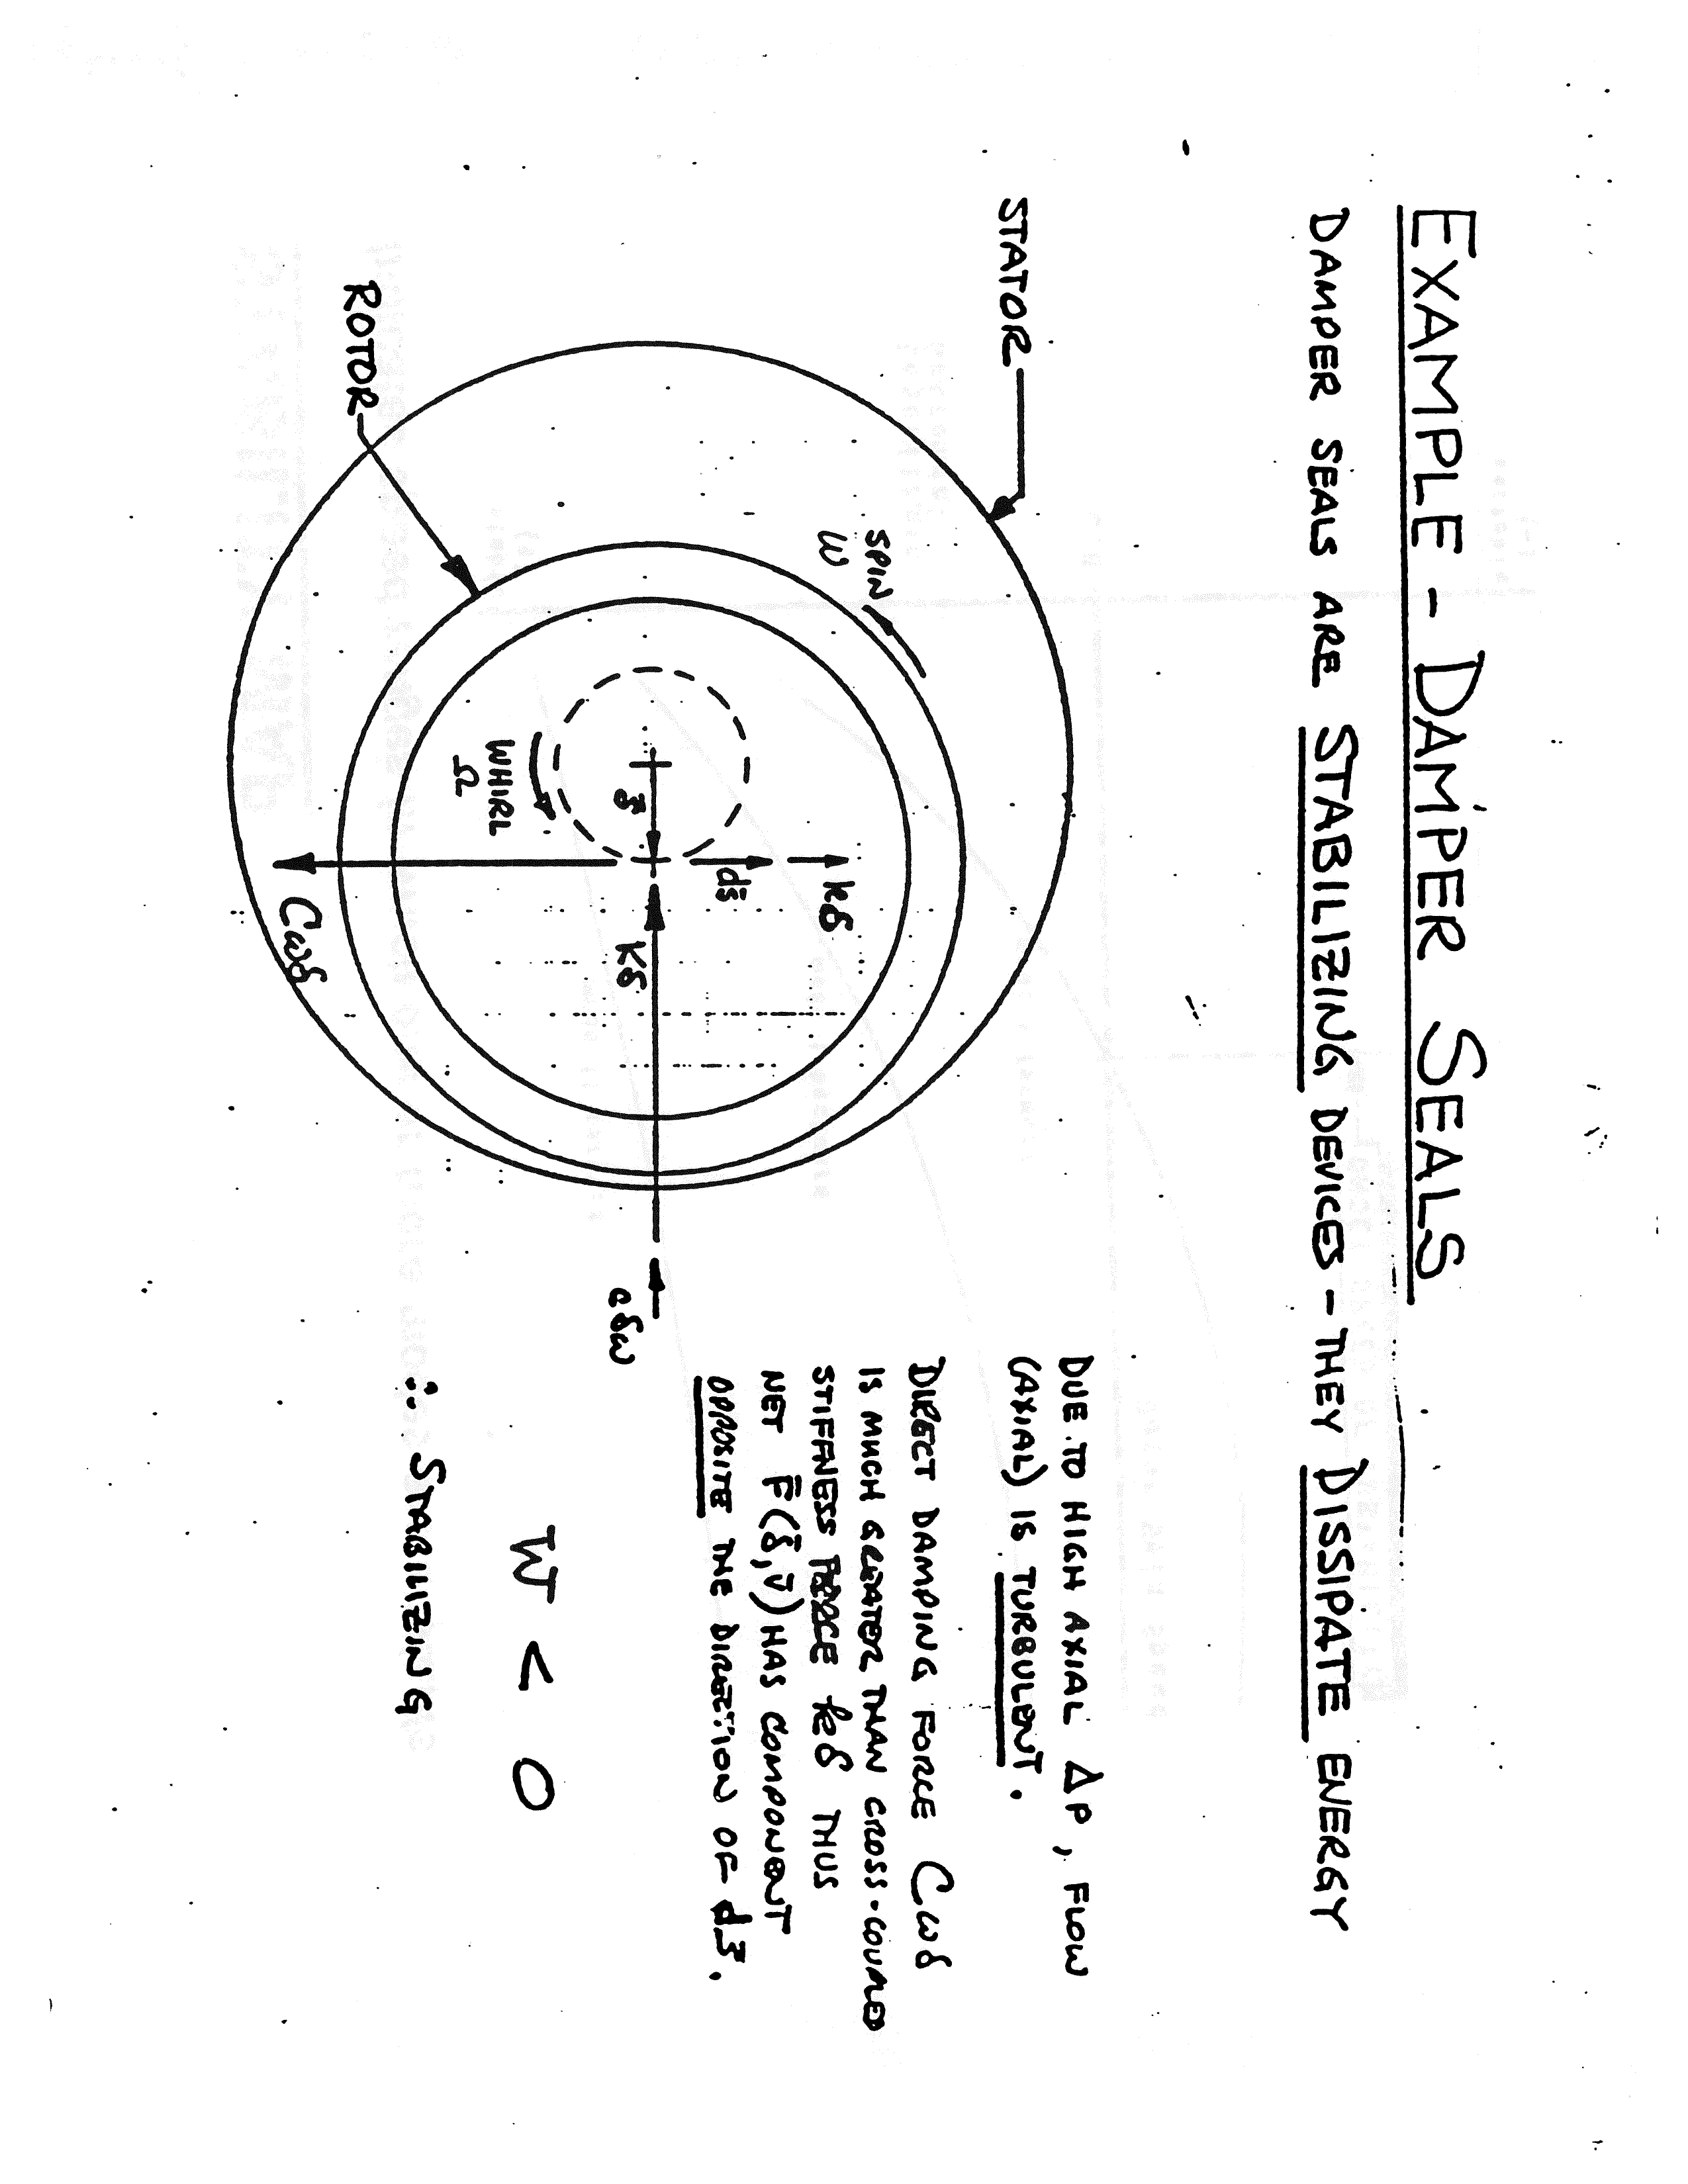 EXAMPLE - DAMPER SEALS
DAMPER SEALS ARE STABILIZING DEVICES - THEY DISSIPATE ENERGY
STATOR
SPIN
ω
ROTOR
WHIRL
Ω
δ̄
dδ̄
kδ
Kδ
Cωδ
cδω
DUE TO HIGH AXIAL ΔP, FLOW
(AXIAL) IS TURBULENT.
DIRECT DAMPING FORCE Cωδ
IS MUCH GREATER THAN CROSS-COUPLED
STIFFNESS FORCE kδ THUS
NET F̄(δ̄,v̄) HAS COMPONENT
OPPOSITE THE DIRECTION OF dδ̄.
W < 0
∴ STABILIZING